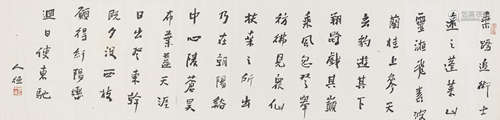 乘蹻追術士
遠之蓬萊山
靈液飛素波
蘭桂上參天
玄豹遊其下
翔鵾戲其巔
乘風忽登舉
彷彿見眾仙
扶桑之所出
乃在朝陽谿
中心陵蒼昊
布葉蓋天涯
日出登東幹
既夕沒西枝
願得紆陽轡
迴日使東馳